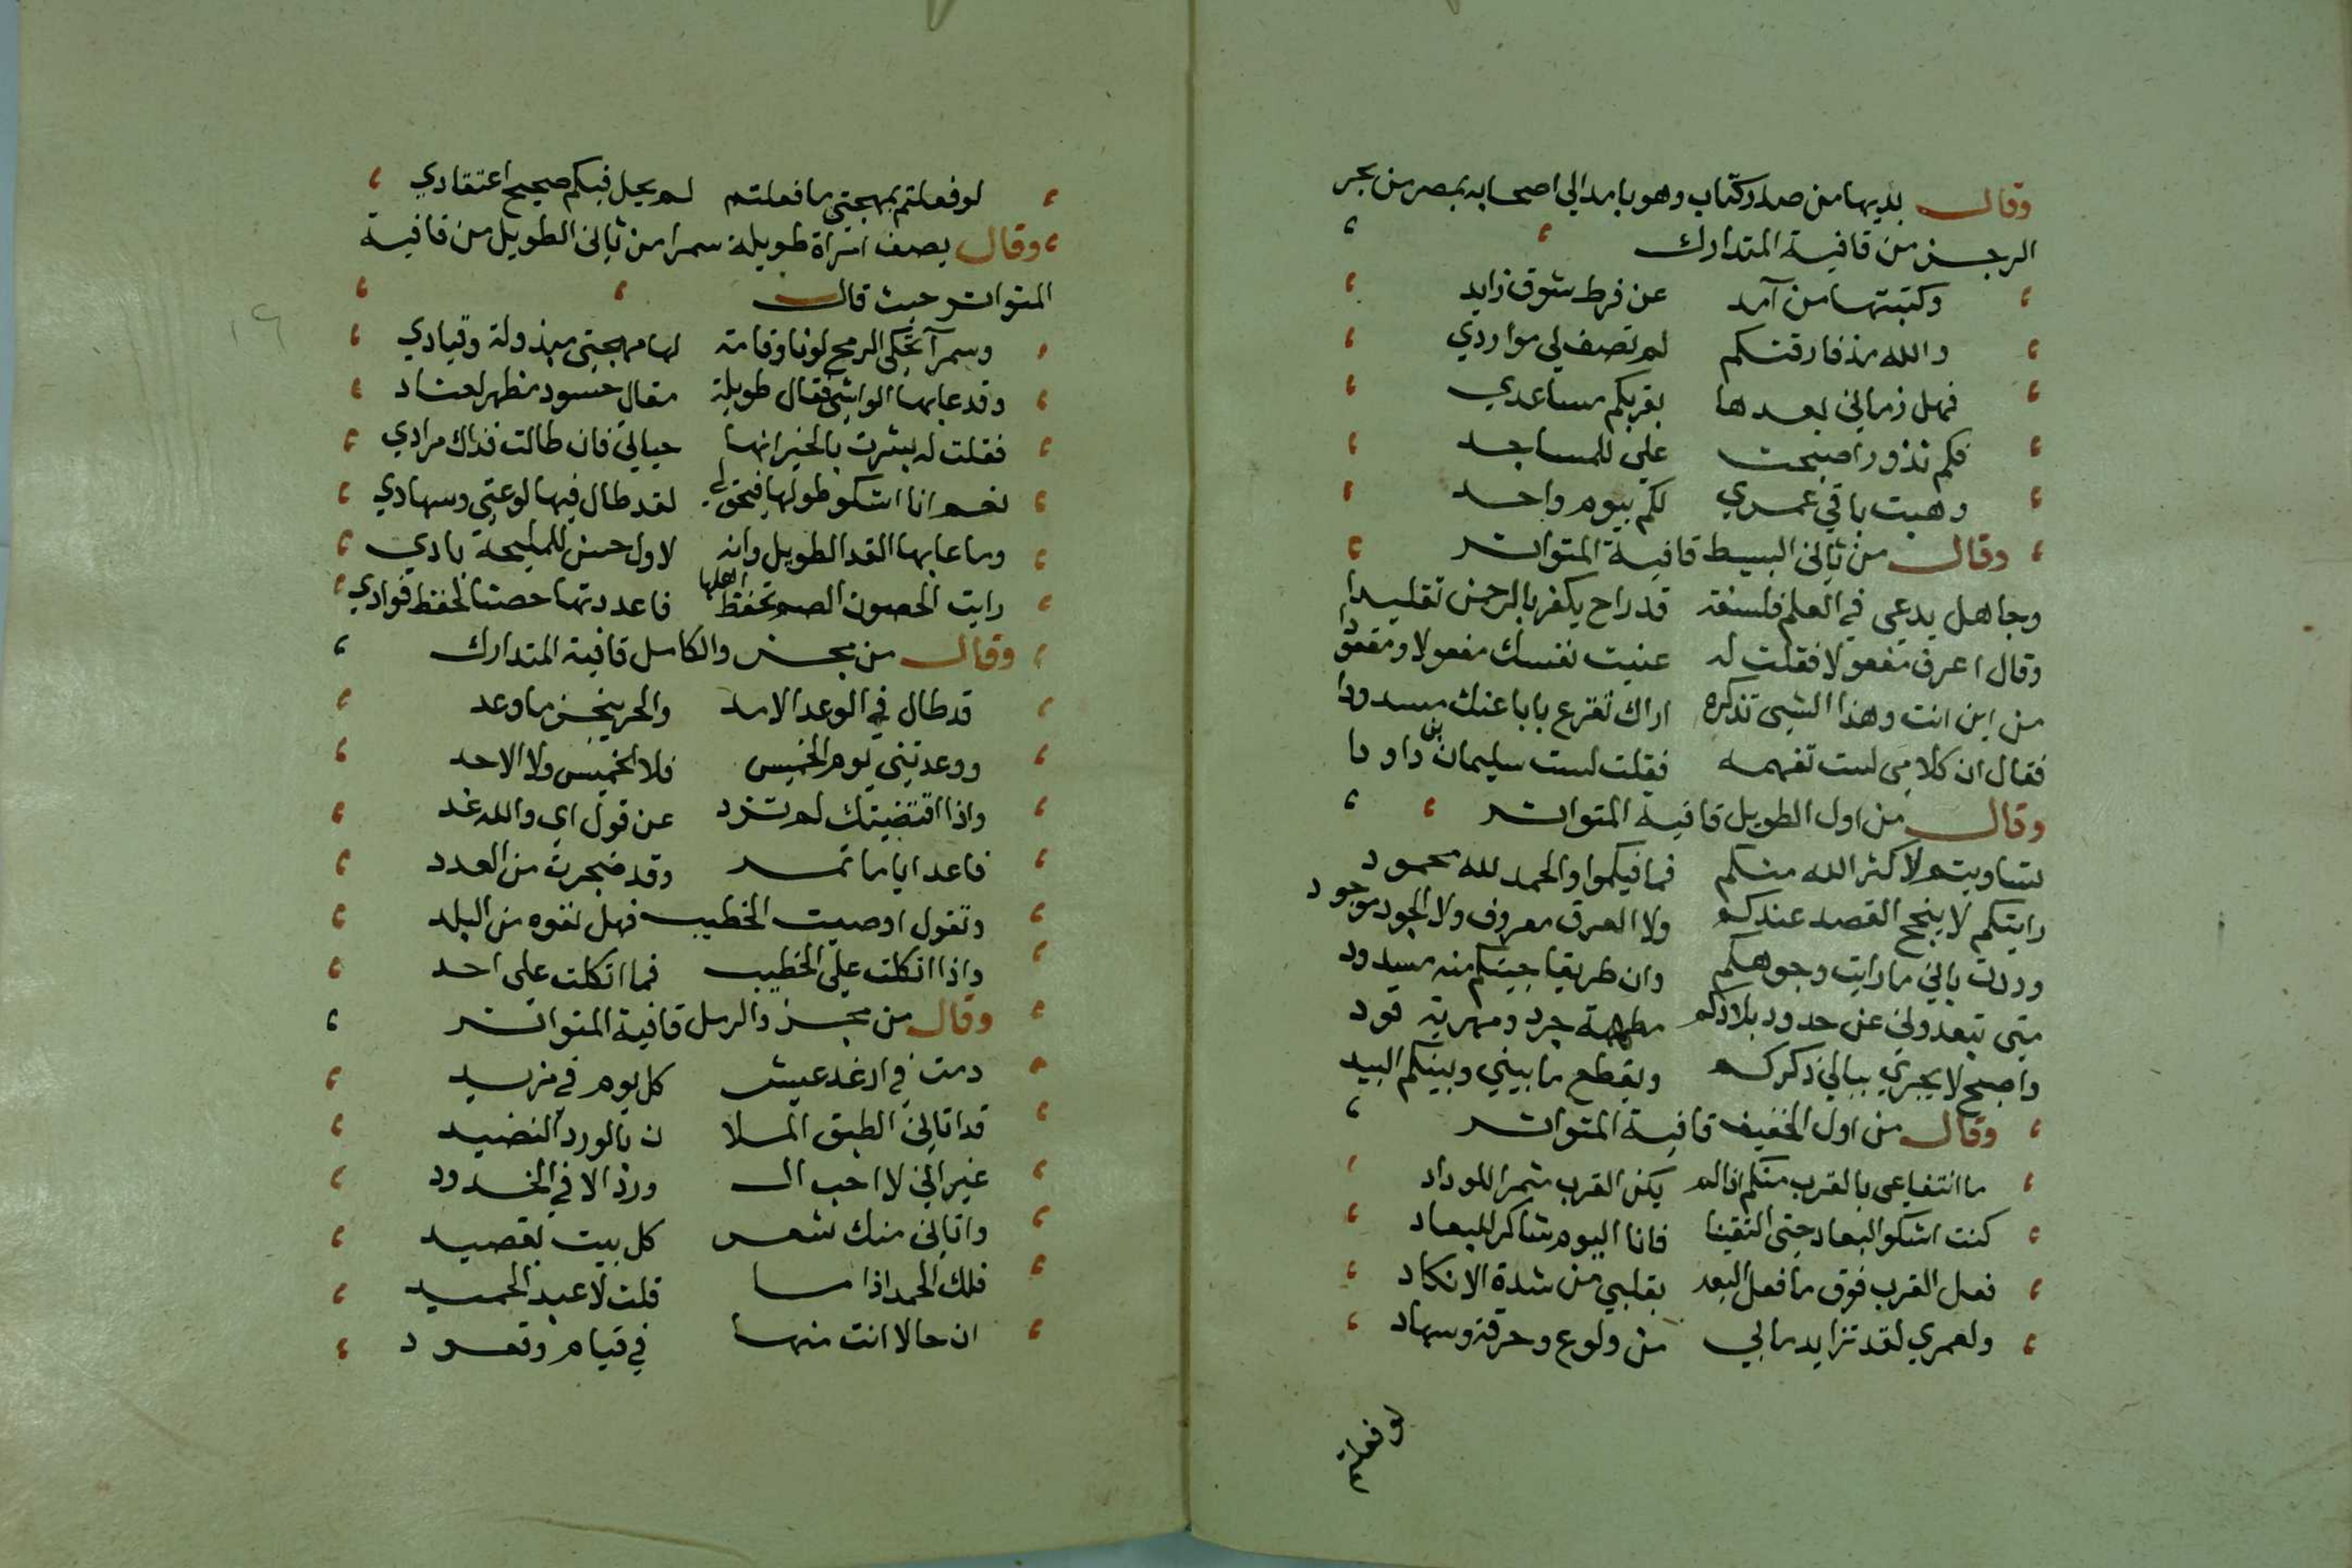 وقال بديها من صدر كتاب وهو بامد الى اصحابه بمصر من بحر
الرجز من قافية المتدارك
وكتبتها من آمد عن فرط شوق زايد
والله مذ فارقتكم لم تصف لي مواردي
فهل زماني بعدها بقربكم مساعدي
فكم نذور اصبحت علي للمساجد
وهبت باقي عمري لكم بيوم واحد
وقال من ثاني البسيط قافية المتواتر
وجاهل يدعي في العلم فلسفة قد راح يكفر بالرحمن تقليدا
وقال اعرف مفعولا فقلت له عنيت نفسك مفعولا ومفعودا
من اين انت وهذا الشي تذكره اراك تقرع بابا عنك مسدودا
فقال ان كلامي لست تفهمه فقلت لست سليمان بن داودا
وقال من اول الطويل قافية المتواتر
تساويتم لا كثر الله منكم فما فيكموا والحمد لله محمود
رايتكم لا ينجح القصد عندكم ولا العرف معروف ولا الجود موجود
وددت باني ما رايت وجوهكم وان طريقا جيتكم منه مسدود
متى تبعدوني عن حدود بلادكم مطهمة جرد ومهرية قود
واصبح لا يجري ببالي ذكركم ويقطع ما بيني وبينكم البيد
وقال من اول الخفيف قافية المتواتر
ما انتفاعي بالقرب منكم اذا لم يكن القرب مثمرا للوداد
كنت اشكو البعاد حتى التقينا فانا اليوم شاكر للبعاد
فعل القرب فوق ما فعل البعد بقلبي من شدة الانكاد
ولعمري لقد تزايد ما بي من ولوع وحرقة وسهاد
لو فعلتم
لو فعلتم بمهجتي ما فعلتم لم يحل فيكم صحيح اعتقادي
وقال يصف امراة طويلة سمرا من ثاني الطويل من قافية
المتواتر حيث قال
وسمرآ تحكي الرمح لونا وقامة لها مهجتي مبذولة وقيادي
وقد عابها الواشي فقال طويلة مقال حسود مظهر لعناد
فقلت له بشرت بالخير انها حياتي فان طالت فذاك مرادي
نعم انا اشكو طولها فيحق لي لقد طال فيها لوعتي وسهادي
وما عابها القد الطويل وانه لاول حسن للمليحة بادي
رايت الحصون الصم تحفظ اهلها فاعددتها حصنا لحفظ فوادي
وقال من مجزو الكامل قافية المتدارك
قد طال في الوعد الامد والحر ينجز ما وعد
ووعدتني يوم الخميس فلا الخميس ولا الاحد
واذا اقتضيتك لم تزد عن قول اي والله غد
فاعد اياما تمر وقد ضجرت من العدد
وتقول اوصيت الخطيب فهل تفوه من البلد
واذا اتكلت على الخطيب فما اتكلت على احد
وقال من مجزو الرمل قافية المتواتر
دمت في ارغد عيش كل يوم في مزيد
قد اتاني الطبق الملا ن بالورد النضيد
غير اني لا احب ال ورد الا في الخدود
واتاني منك شعر كل بيت بقصيد
فلك الحمد اذا ما قلت لا عبد الحميد
ان حالا انت منها في قيام وقعود
١٩